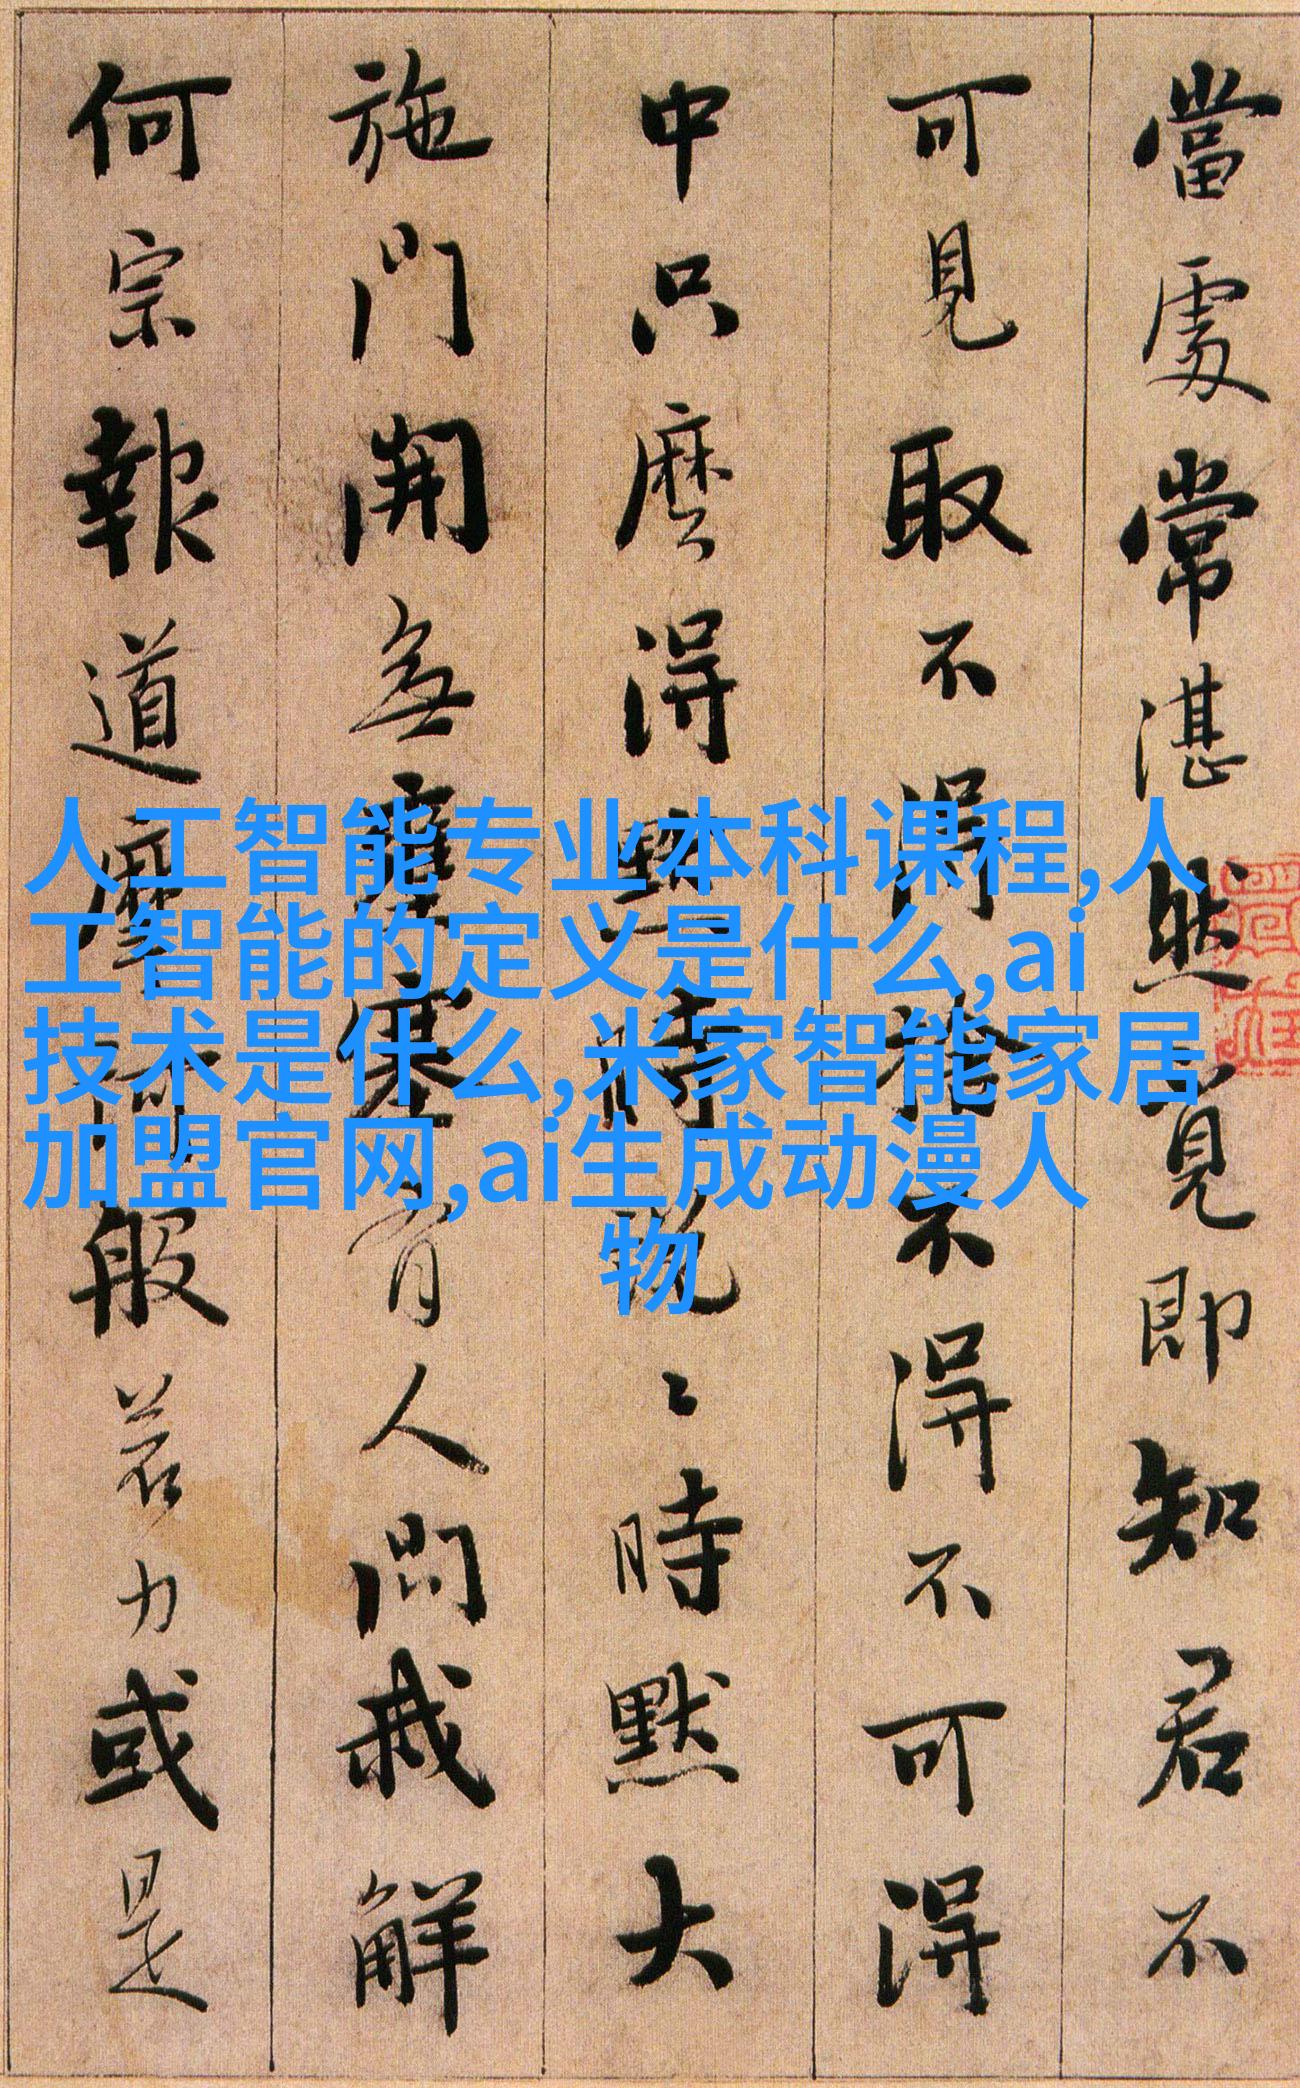 當處常湛然覓即知君不
可見取不得捨不得不可得
中只麼得默時說〻時默大
施門開無壅塞有人問我解
何宗報道摩訶般若力或是
人工智能专业本科课程,人
工智能的定义是什么,ai
技术是什么,米家智能家居
加盟官网,ai生成动漫人
物